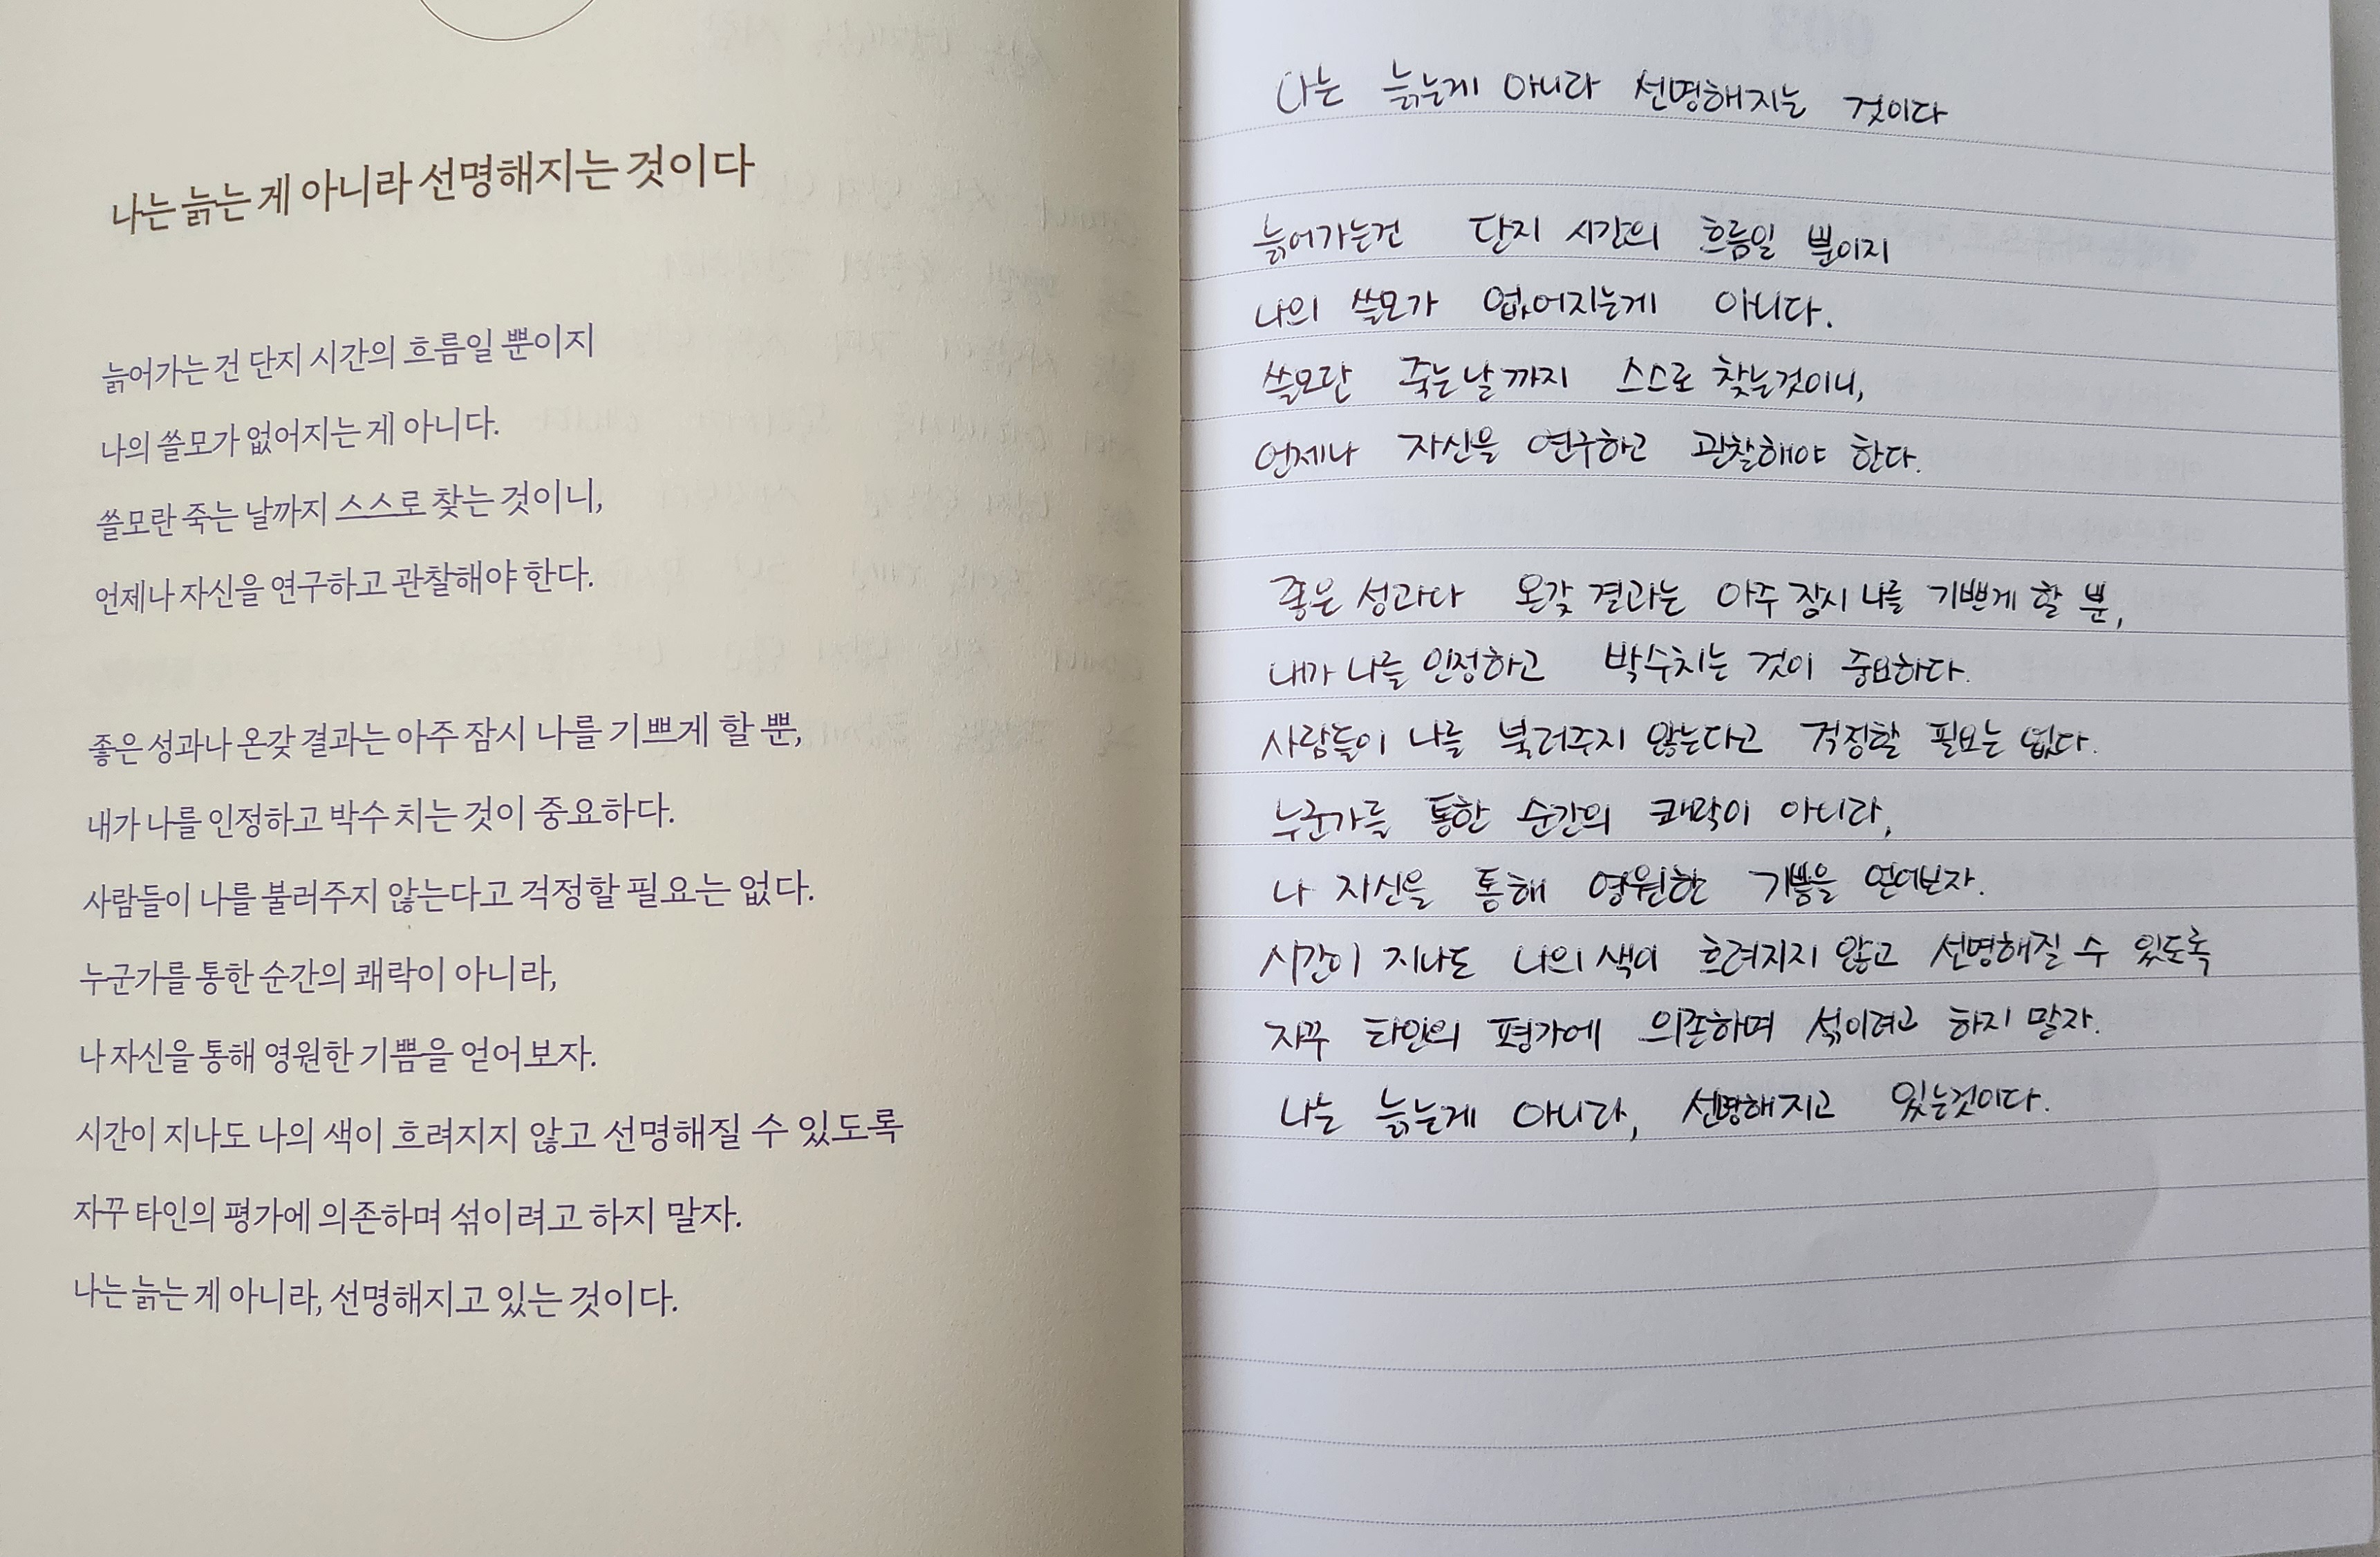 나는 늙는 게 아니라 선명해지는 것이다
늙어가는 건 단지 시간의 흐름일 뿐이지
나의 쓸모가 없어지는 게 아니다.
쓸모란 죽는 날까지 스스로 찾는 것이니,
언제나 자신을 연구하고 관찰해야 한다.
좋은 성과나 온갖 결과는 아주 잠시 나를 기쁘게 할 뿐,
내가 나를 인정하고 박수 치는 것이 중요하다.
사람들이 나를 불러주지 않는다고 걱정할 필요는 없다.
누군가를 통한 순간의 쾌락이 아니라,
나 자신을 통해 영원한 기쁨을 얻어보자.
시간이 지나도 나의 색이 흐려지지 않고 선명해질 수 있도록
자꾸 타인의 평가에 의존하며 섞이려고 하지 말자.
나는 늙는 게 아니라, 선명해지고 있는 것이다.
나는 늙는게 아니라 선명해지는 것이다
늙어가는건 단지 시간의 흐름일 뿐이지
나의 쓸모가 없어지는게 아니다.
쓸모란 죽는날까지 스스로 찾는것이니,
언제나 자신을 연구하고 관찰해야 한다.
좋은 성과나 온갖 결과는 아주 잠시 나를 기쁘게 할 뿐,
내가 나를 인정하고 박수치는 것이 중요하다.
사람들이 나를 불러주지 않는다고 걱정할 필요는 없다.
누군가를 통한 순간의 쾌락이 아니라,
나 자신을 통해 영원한 기쁨을 얻어보자.
시간이 지나도 나의 색이 흐려지지 않고 선명해질 수 있도록
자꾸 타인의 평가에 의존하며 섞이려고 하지 말자.
나는 늙는게 아니라, 선명해지고 있는것이다.